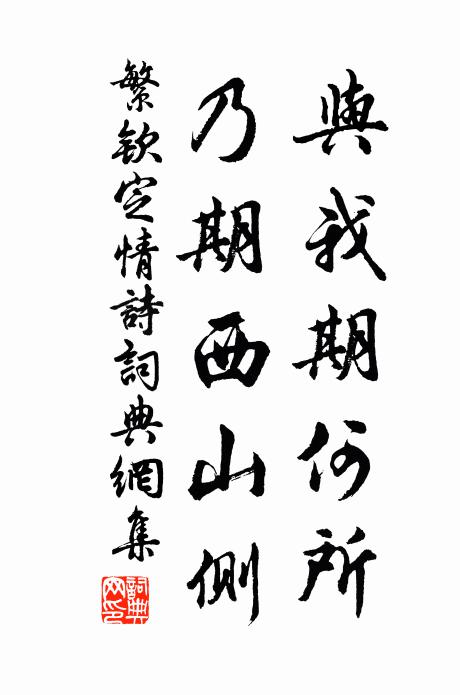 與我期何所
乃期西山側
繁欽定情詩詞典網集
詞典網印